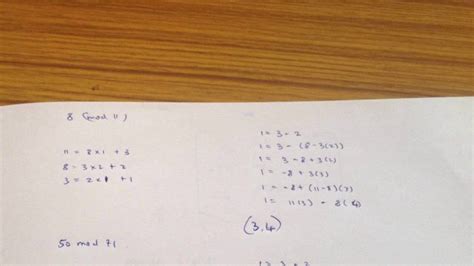 8 (mod 11)
11 = 8x1 + 3
8 = 3x2 + 2
3 = 2x1 + 1
1 = 3 - 2
1 = 3 - (8 - 3(2))
1 = 3 - 8 + 3(2)
1 = -8 + 3(3)
1 = -8 + (11-8)(3)
1 = 11(3) - 8(4)
(3,4)
50 mod 71
1 = 3 - 2